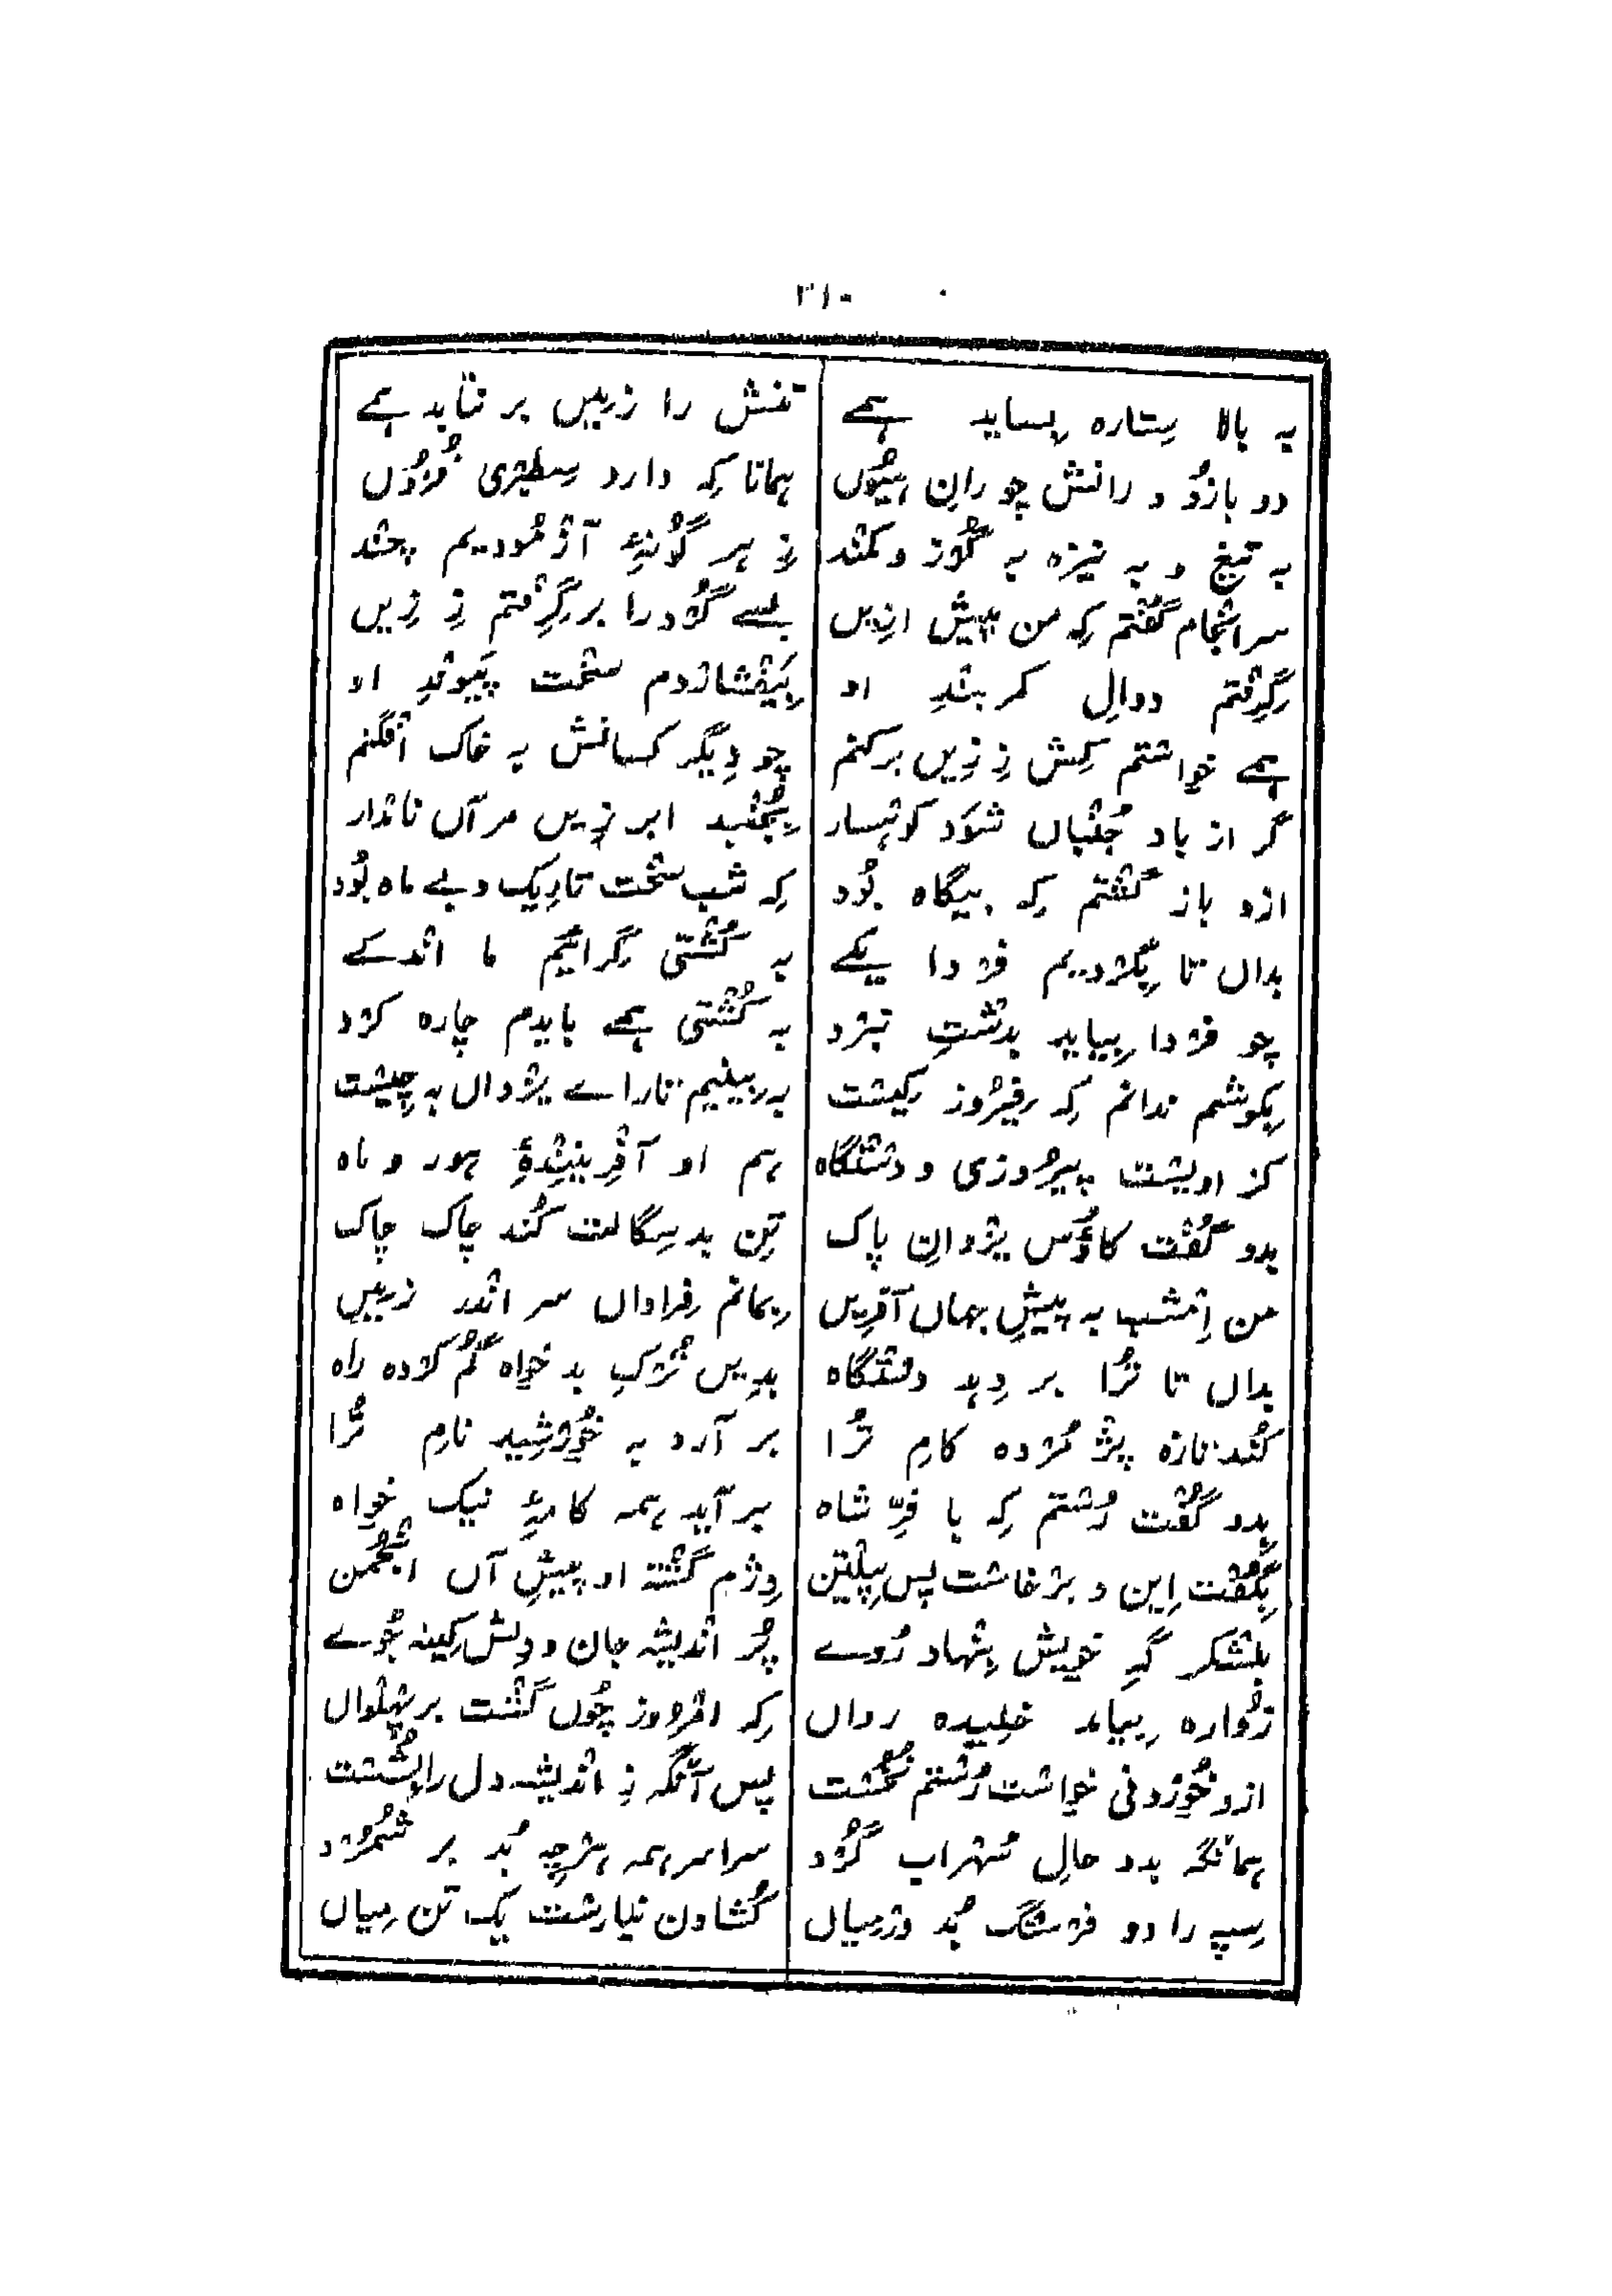 ۳۱۰
بہ بالا ستارہ بساید ہمے تنش را زمیں بر نتابد ہمے
دو بازو و رانش چو رانِ ہیوں ہمانا کہ دارد سطبری فزوں
بہ تیغ و بہ نیزہ بہ گرز و کمند ز ہر گونۂ آزمودیم چند
سرانجام گفتم کہ من پیش ازیں بسے گرد را برگرفتم ز زیں
گرفتم دوالِ کمربندِ او بیفشاردم سخت پیوندِ او
ہمے خواستم کش ز زیں برکنم چو دیگر کسانش بہ خاک افگنم
گر از باد جنباں شود کوہسار نجنبید ابر زیں مر آں نامدار
ازو باز گشتم کہ بیگاہ بود کہ شب سخت تاریک و بے ماہ بود
بداں تا بگردیم فردا یکے بہ کشتی گرائیم ما اندکے
چو فردا بیاید بدشتِ نبرد بہ کشتی ہمے بایدم چارہ کرد
بکوشم ندانم کہ فیروز کیست بہ بینیم تا رائے یزداں بہ چیست
کز اویست پیروزی و دستگاہ ہم او آفرینندۂ ہور و ماہ
بدو گفت کاؤس یزدانِ پاک تنِ بدسگالت کند چاک چاک
من امشب بہ پیشِ جہاں آفریں بمانم فراواں سر اندر زمیں
بداں تا ترا بر دہد دستگاہ بدیں ترکِ بد خواہ گم کردہ راہ
کند تازہ پژمردہ کامِ ترا بر آرد بہ خورشید نامِ ترا
بدو گفت رستم کہ با فرِّ شاہ برآید ہمہ کامۂ نیک خواہ
بگفت این و برخاست پس پیلتن دژم گشتہ او پیشِ آں انجمن
بلشکر گہِ خویش بنہاد روے پر اندیشہ جان و دلش کینہ جوے
زوارہ بیامد خلیدہ رواں کہ امروز چوں گشت بر پہلواں
ازو خوردنی خواست رستم نخست پس آنگہ ز اندیشہ دل را بشست
ہمانگہ بدو حالِ سہراب گرد سراسر ہمہ ہرچہ بد بر شمرد
سپہ را دو فرسنگ بد درمیاں کشادن نیارست یک تن میاں